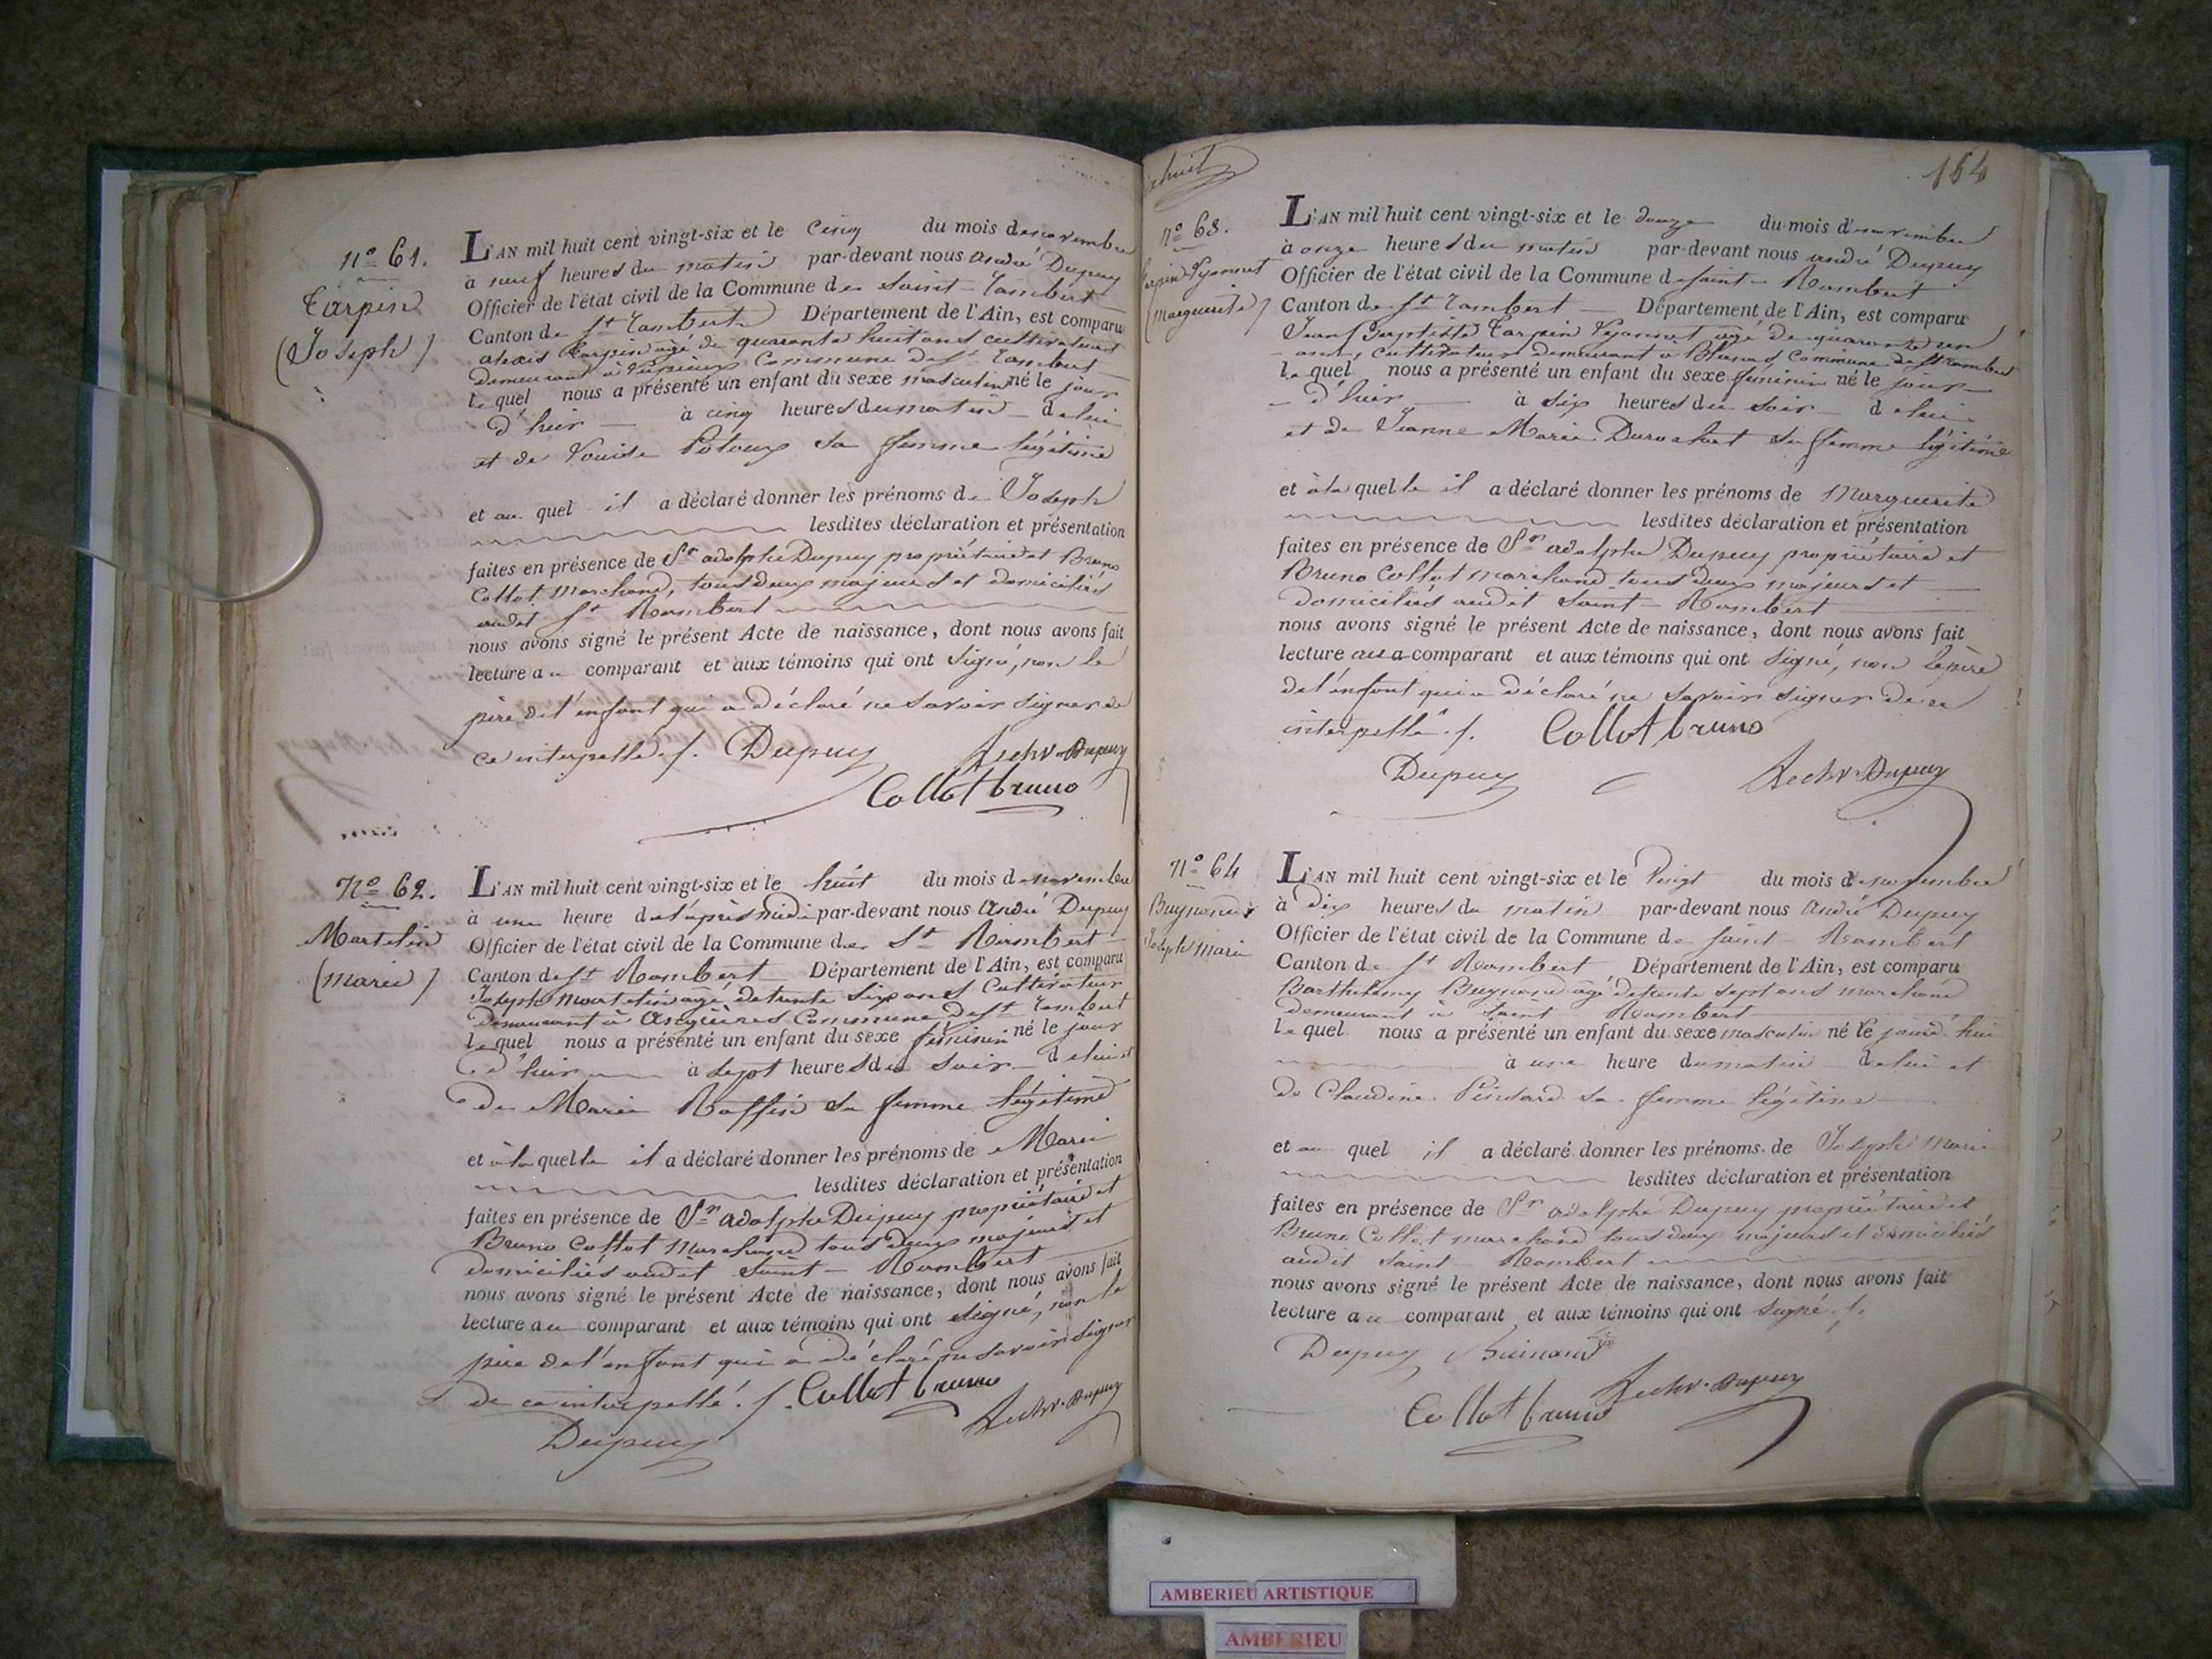 nº 61.
Tarpin
(Joseph)
L'AN mil huit cent vingt-six et le cinq du mois de novembre
à neuf heures du matin par-devant nous andré Dupuy
Officier de l'état civil de la Commune de Saint-Rambert
Canton de St Rambert Département de l'Ain, est comparu
alexis Tarpin âgé de quarante huit ans cultivateur
demeurant à Commune de St Rambert
lequel nous a présenté un enfant du sexe masculin né le jour
d'hier à cinq heures du matin de lui
et de Louise sa femme légitime
et au quel il a déclaré donner les prénoms de Joseph
lesdites déclaration et présentation
faites en présence de Sr adolphe Dupuy propriétaire et Bruno
Collot Marchand, tous deux majeurs et domiciliés
audit St Rambert
nous avons signé le présent Acte de naissance, dont nous avons fait
lecture au comparant et aux témoins qui ont signé, non le
père de l'enfant qui a déclaré ne savoir signer de
ce interpellé ./. Dupuy
Collot bruno
Nº 62.
Martelin
(marie)
L'AN mil huit cent vingt-six et le huit du mois de novembre
à une heure de l'après midi par-devant nous André Dupuy
Officier de l'état civil de la Commune de St Rambert
Canton de St Rambert Département de l'Ain, est comparu
Joseph Martelin âgé de trente six ans Cultivateur
demeurant à Commune de St Rambert
lequel nous a présenté un enfant du sexe féminin né le jour
d'hier à sept heures du soir de lui et
de Marie Raffin sa femme légitime
et à la quelle il a déclaré donner les prénoms de Marie
lesdites déclaration et présentation
faites en présence de Sr adolphe Dupuy propriétaire et
Bruno Collot Marchand tous deux majeurs et
domiciliés audit Saint-Rambert
nous avons signé le présent Acte de naissance, dont nous avons fait
lecture au comparant et aux témoins qui ont signé, non le
père de l'enfant qui a déclaré ne savoir signer
de ce interpellé ./. Collot bruno
Dupuy
164
nº 63.
(Marguerite)
L'AN mil huit cent vingt-six et le douze du mois de novembre
à onze heures du matin par-devant nous andré Dupuy
Officier de l'état civil de la Commune de Saint-Rambert
Canton de St Rambert Département de l'Ain, est comparu
Jean Baptiste Tarpin âgé de quarante un
ans, cultivateur demeurant à Blanas Commune de St Rambert
lequel nous a présenté un enfant du sexe féminin né le jour
d'hier à six heures du soir de lui
et de Jeanne Marie Durochat sa femme légitime
et à la quelle il a déclaré donner les prénoms de Marguerite
lesdites déclaration et présentation
faites en présence de Sr adolphe Dupuy propriétaire et
Bruno Collot marchand tous deux majeurs et
domiciliés audit Saint-Rambert
nous avons signé le présent Acte de naissance, dont nous avons fait
lecture au comparant et aux témoins qui ont signé, non le père
de l'enfant qui a déclaré ne savoir signer de ce
interpellé ./. Collot bruno
Dupuy
Nº 64
Joseph marie
L'AN mil huit cent vingt-six et le Vingt du mois de novembre
à dix heures du matin par-devant nous André Dupuy
Officier de l'état civil de la Commune de Saint-Rambert
Canton de St Rambert Département de l'Ain, est comparu
Barthelemy âgé de trente sept ans marchand
demeurant à Saint Rambert
lequel nous a présenté un enfant du sexe masculin né le jourd'hui
à une heure du matin de lui et
de Claudine sa femme légitime
et au quel il a déclaré donner les prénoms de Joseph Marie
lesdites déclaration et présentation
faites en présence de Sr adolphe Dupuy propriétaire et
Bruno Collot marchand tous deux majeurs et domiciliés
audit Saint-Rambert
nous avons signé le présent Acte de naissance, dont nous avons fait
lecture au comparant et aux témoins qui ont signé ./.
Dupuy
Collot bruno
AMBERIEU ARTISTIQUE
AMBERIEU